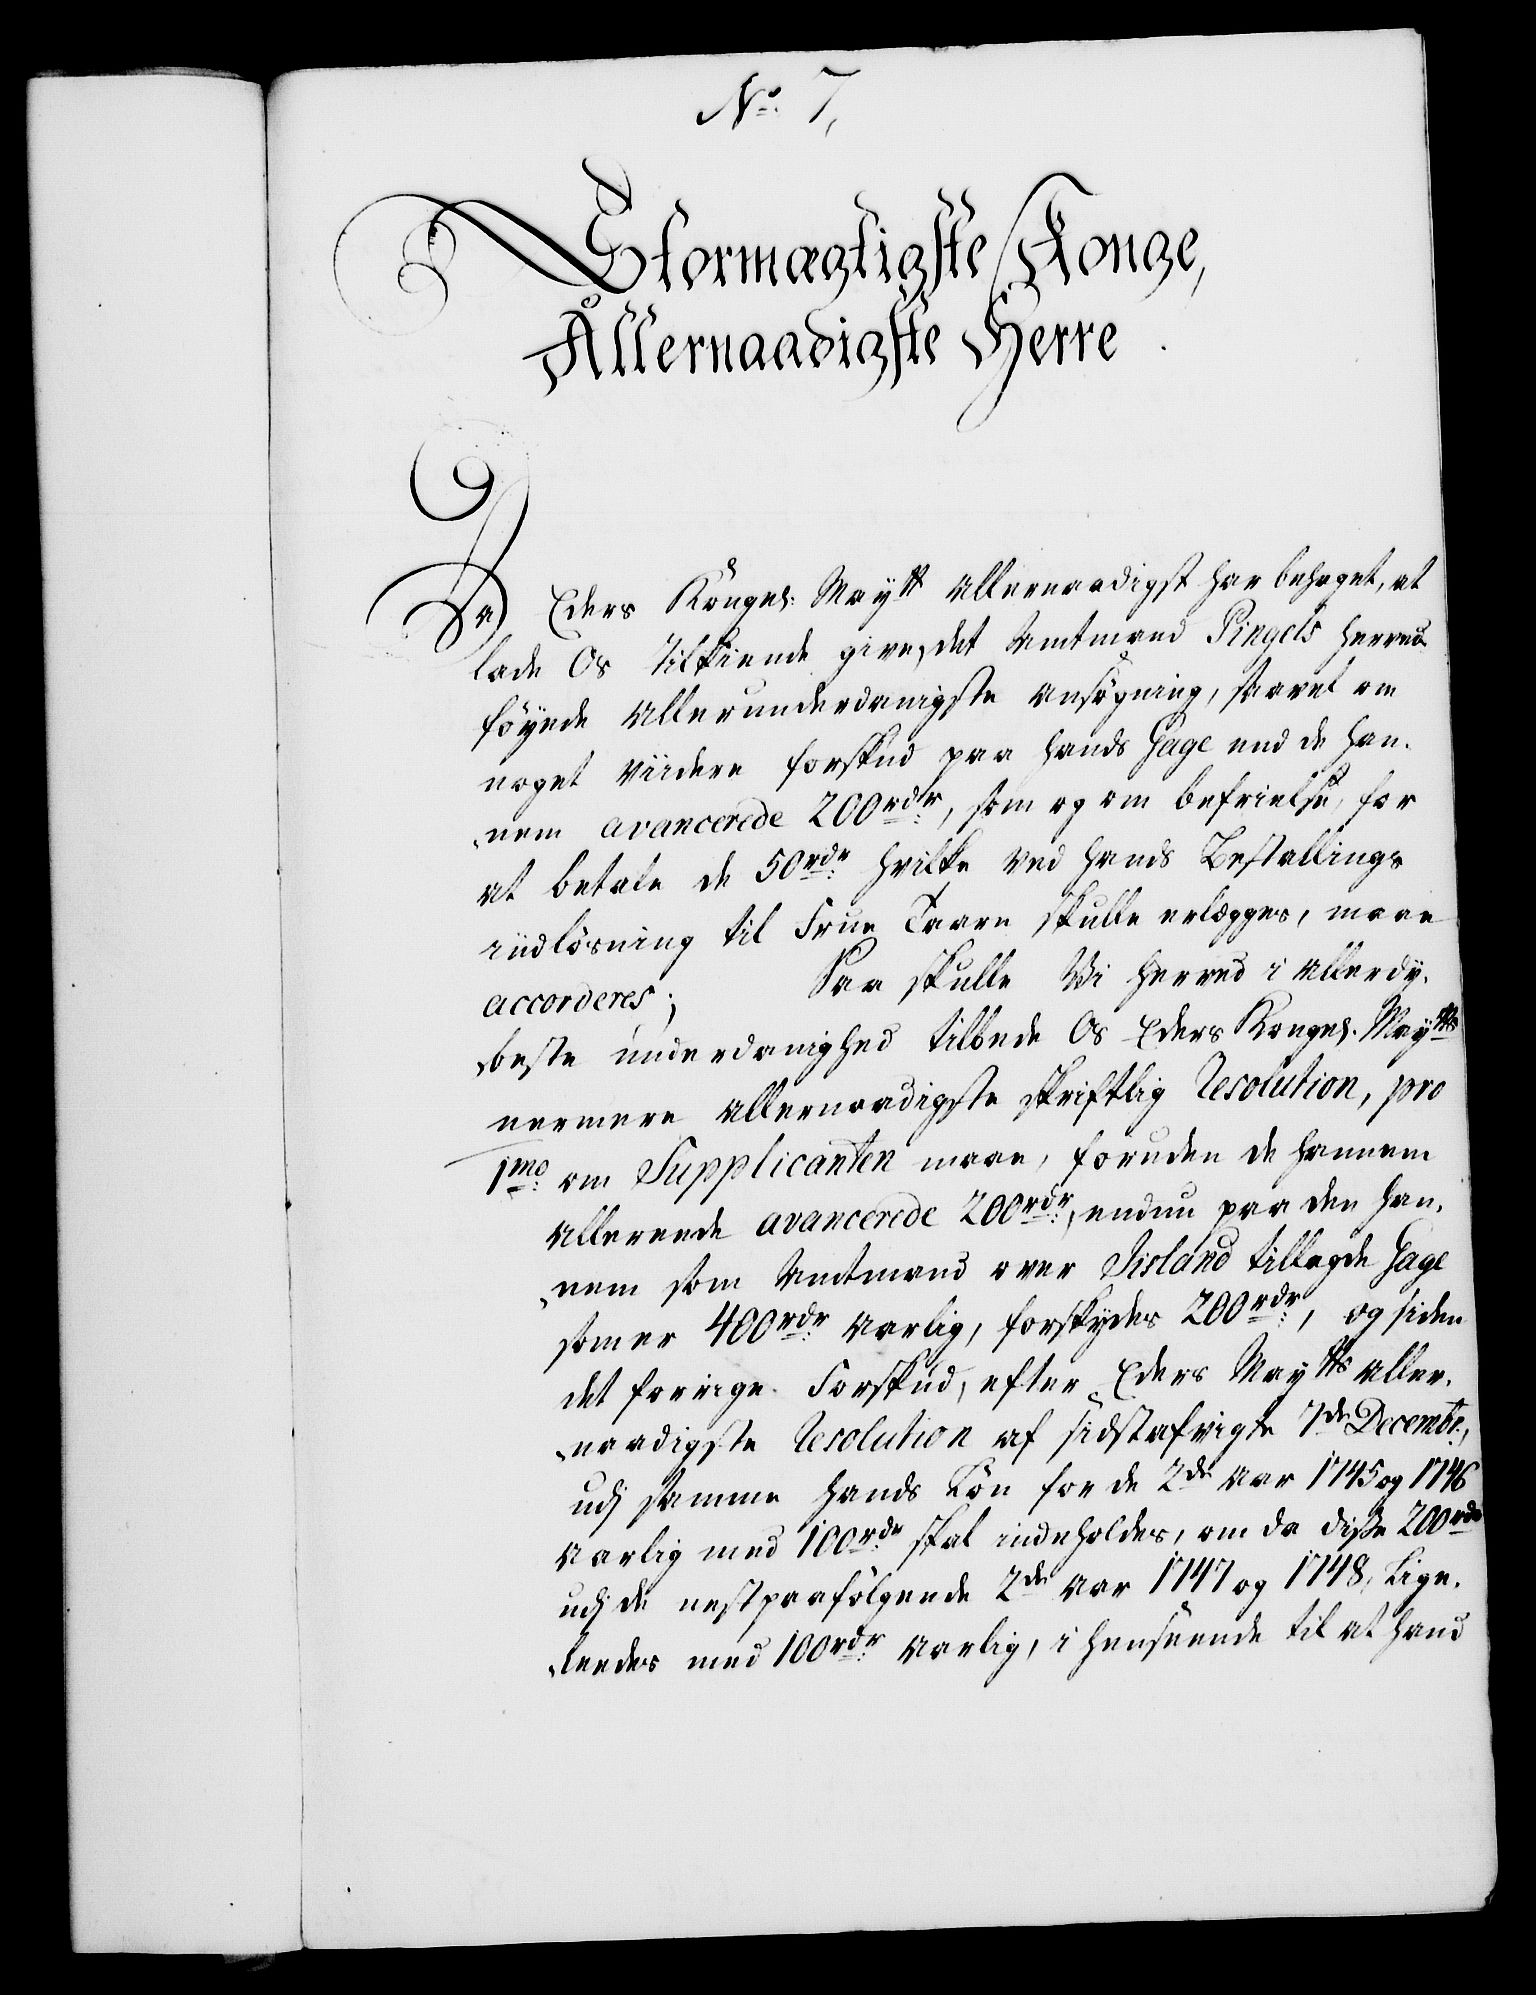 No. 7,
Stormægtigste Konge,
Allernaadigste Herre.
Da Eders Kongel: Maytt Allernaadigst har behaget, at
lade Os tilkiende give, det Amtmand Pingels herved
föyede Allerunderdanigste Ansögning, saavel om
noget viidere forskud paa hands Gage end de han¬
nem avancerede 200rdr:, som og om befrielse, for
at betale de 50rdr: hvilke ved hands Bestallings
indlösning til Frue Taarn skulle erlægges, maae
accorderes; Saa skulle Vi herved i allerdy¬
beste underdanighed tilbede Os Eders Kongel. Maytts
nermere allernaadigste skriftlig Resolution, pro
1mo: om Supplicanten maae, foruden de hannem
allereede avancerede 200rdr:, endnu paa den han¬
nem som Amtmand over Iisland tillagde Gage
som er 400rdr: aarlig, forskydes 200rdr:, og siden
det forrige Forskud, efter Eders Maytts aller¬
naadigste Resolution af sidstafvigte 7de Decembr:,
udj samme hands Lön for de 2de Aar 1745 og 1746
aarlig med 100rdr: skal indeholdes, om da disse 200rdr
udj de nestpaafölgende 2de Aar 1747 og 1748, lige¬
leedes med 100rdr: aarlig, i henseende til at hand